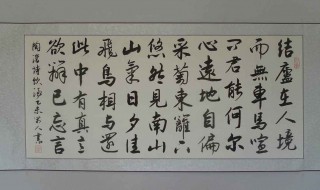 結廬在人境
而無車馬喧
問君能何尔
心遠地自偏
采菊東籬下
悠然見南山
山氣日夕佳
飛鳥相與還
此中有真意
欲辯已忘言
陶潛詩飲酒乙未人書